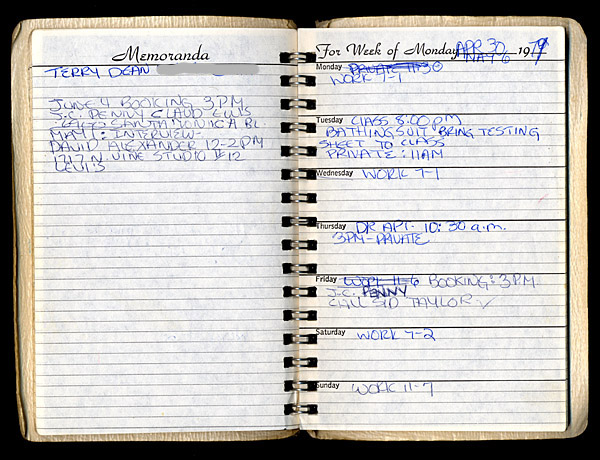 Memoranda
TERRY DEAN
JUNE 4 BOOKING 3 P.M.
J.C. PENNY CLAUD LEWIS
SANTA MONICA BL.
INTERVIEW-
DAVID ALEXANDER 12-2PM
1717 N VINE STUDIO #12
LEVI'S
For Week of Monday APR 30 1979
MAY 6
Monday PRIVATE 11:30
WORK 7-1
Tuesday CLASS 8:00 pm
BATHING SUIT. BRING TESTING
SHEET TO CLASS
PRIVATE: 11AM
Wednesday WORK 7-1
Thursday DR APT. 10:30 a.m.
3PM-PRIVATE
Friday 11-6 BOOKING: 3 P.M.
J.C. PENNY
CALL SID TAYLOR
Saturday WORK 7-2
Sunday WORK 11-7